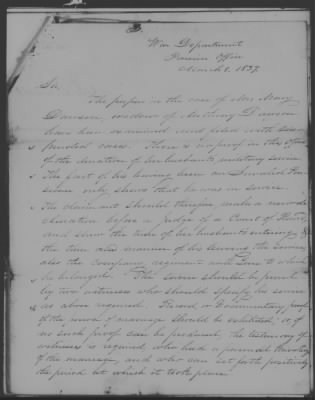 War Department
Pension Office
March 8, 1837
Sir,
The papers in the case of Mrs Mary
Dawson, widow of Anthony Dawson
have been examined and filed with
cases. There is no proof in this office
of the duration of her husband's military service
The fact of his having been an Invalid Pen
sioner only shews that he was in service.
The claimant should therefore make a new de
claration before a judge of a Court of Record
and show the time of her husband's entering &
the time and manner of his leaving the service
also the company, regiment and Line to which
he belonged. The service should be proved
by two witnesses who should specify his service
as above required. Record or documentary proof
of the of marriage should be exhibited, or if
no such proof can be produced the testimony of
witnesses is required who had a personal knowledge
of the marriage, and who can set forth positively
the period at which it took place